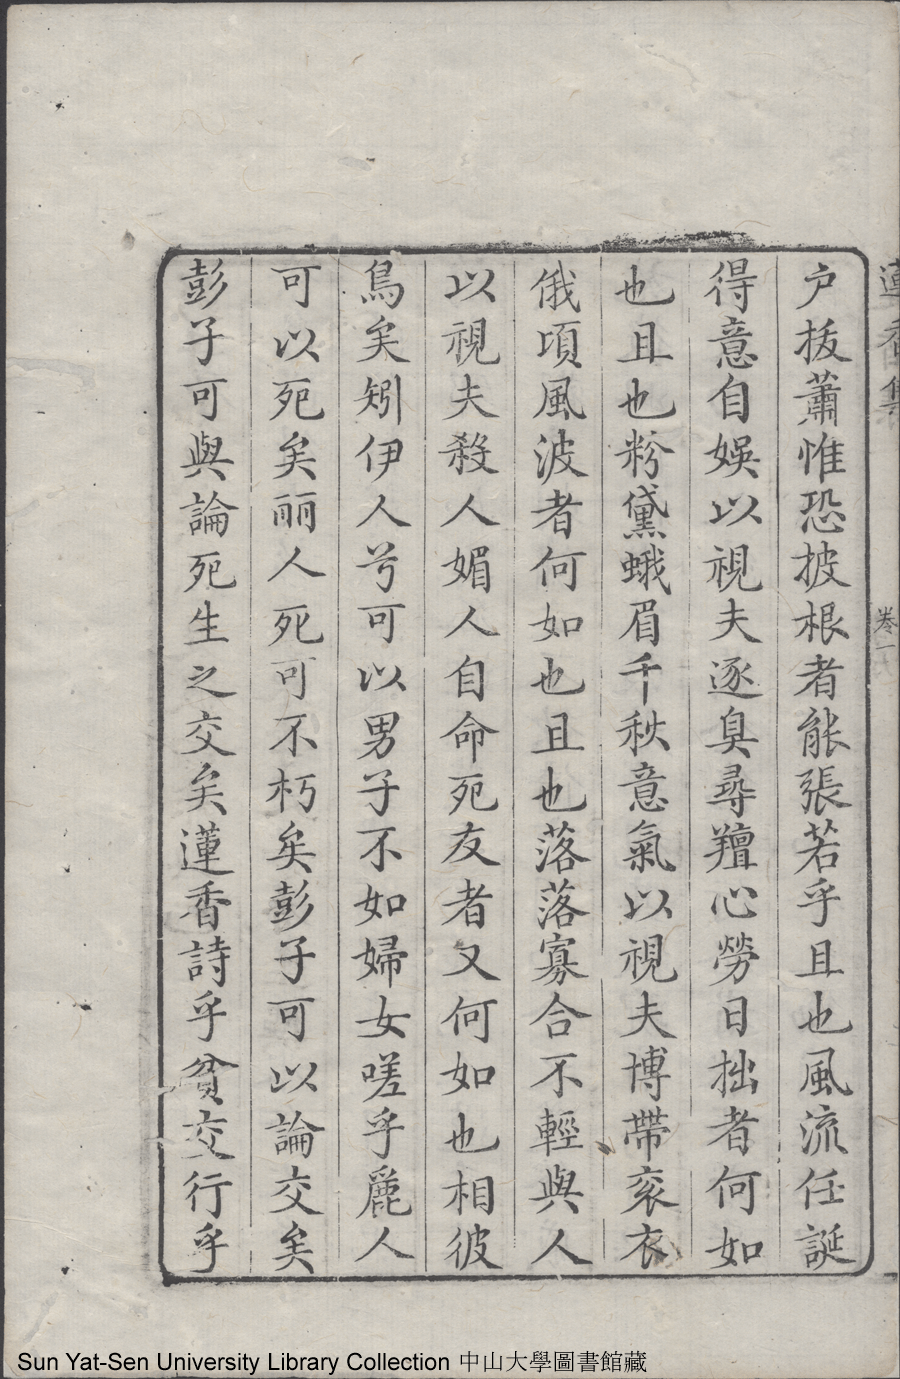 户拔蕭惟恐披根者能張若乎且也風流任誕
得意自娛以視夫逐臭尋羶心勞日拙者何如
也且也粉黛蛾眉千秋意氣以視夫博帶衮衣
俄頃風波者何如也且也落落寡合不輕與人
以視夫殺人媚人自命死友者又何如也相彼
鳥矣矧伊人兮可以男子不如婦女嗟乎麗人
可以死矣丽人死可不朽矣彭子可以論交矣
彭子可與論死生之交矣蓮香詩乎貧交行乎
蓮香集
卷一
Sun Yat-Sen University Library Collection 中山大學圖書館藏